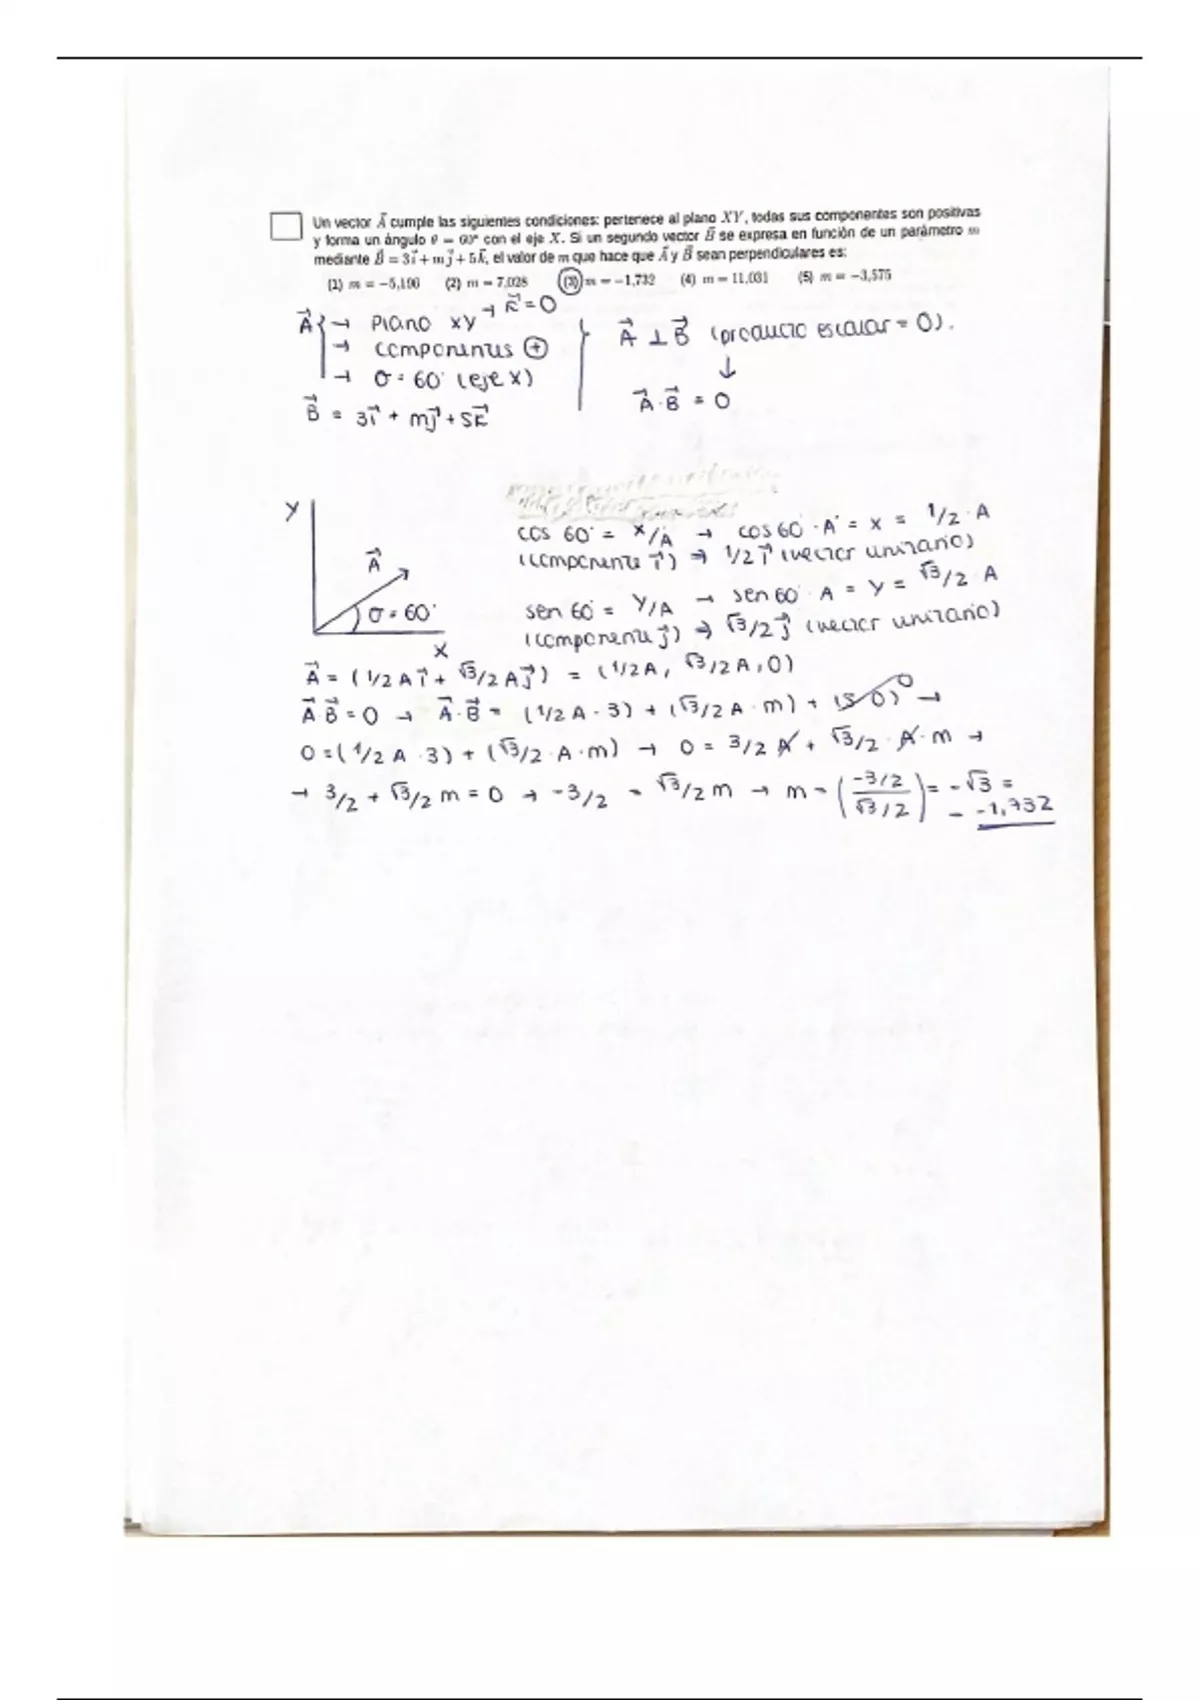 Un vector A⃗ cumple las siguientes condiciones: pertenece al plano XY, todas sus componentes son positivas
y forma un ángulo θ = 60° con el eje X. Si un segundo vector B⃗ se expresa en función de un parámetro m
mediante B⃗ = 3i⃗ + mj⃗ + 5k⃗, el valor de m que hace que A⃗ y B⃗ sean perpendiculares es:
(1) m = −5,196 (2) m = 7,028 (3) m = −1,732 (4) m = 11,031 (5) m = −3,575
A⃗ { → Plano XY → k⃗ = 0
→ componentes ⊕
→ σ = 60° (eje X)
B⃗ = 3i⃗ + mj⃗ + 5k⃗
A⃗ ⊥ B⃗ (producto escalar = 0).
↓
A⃗ · B⃗ = 0
Y
A⃗
σ = 60°
X
cos 60° = X/A → cos 60 · A = X = 1/2 · A
(componente i⃗) → 1/2 i⃗ (vector unitario)
sen 60 = Y/A → sen 60 · A = Y = √3/2 A
(componente j⃗) → √3/2 j⃗ (vector unitario)
A⃗ = (1/2 A i⃗ + √3/2 A j⃗) = (1/2 A, √3/2 A, 0)
A⃗·B⃗ = 0 → A⃗·B⃗ = (1/2 A · 3) + (√3/2 A · m) + (5·0) 0 →
0 = (1/2 A · 3) + (√3/2 · A · m) → 0 = 3/2 A + √3/2 · A · m →
→ 3/2 + √3/2 m = 0 → -3/2 = √3/2 m → m = (-3/2 / √3/2) = -√3 =
= -1,732